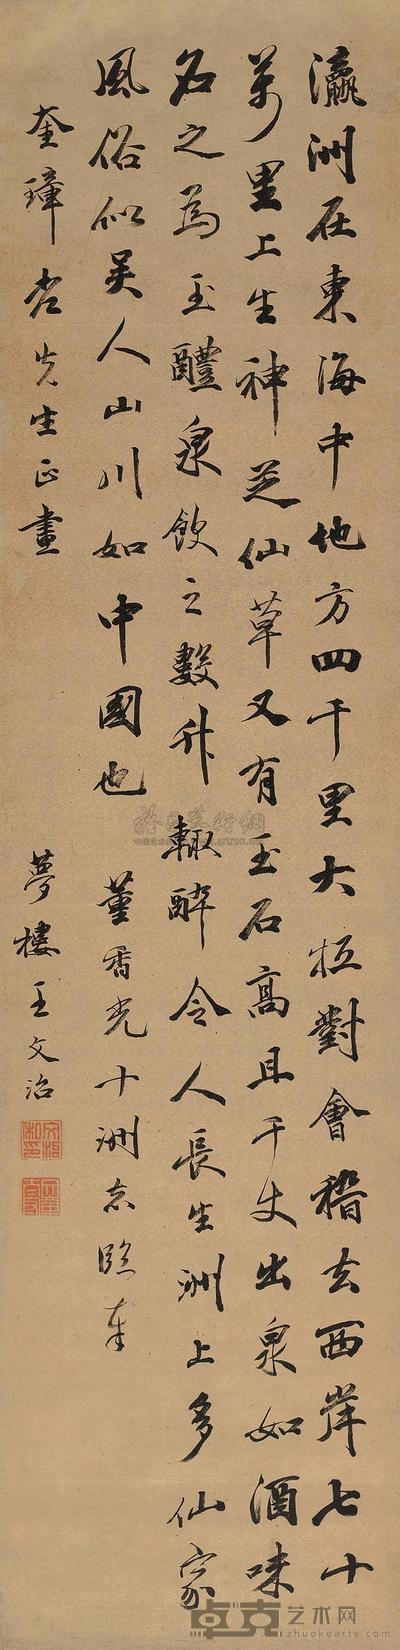 瀛洲在東海中地方四千里大抵對會稽去西岸七十
萬里上生神芝仙草又有玉石高且千丈出泉如酒味
名之為玉醴泉飲之數升輒醉令人長生洲上多仙家
風俗似吴人山川如中國也
董香光十洲志臨奉
奎璋老先生正畫
夢樓王文治
卓克艺术网
zhuokearts.com